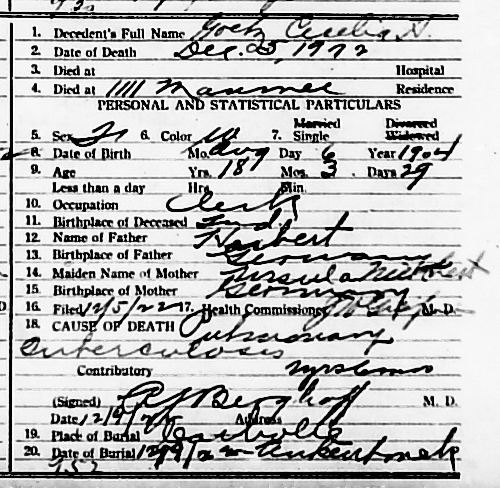 1. Decedent's Full Name Goetz Cecelia A.
2. Date of Death Dec. 25, 1922
3. Died at Hospital
4. Died at 1111 Maumee Residence
PERSONAL AND STATISTICAL PARTICULARS
Married Divorced
5. Sex F 6. Color W 7. Single Widowed
8. Date of Birth Mo. Aug Day 6 Year 1904
9. Age Yrs. 18 Mos. 3 Days 29
Less than a day Hrs. Min.
10. Occupation Clerk
11. Birthplace of Deceased Ind
12. Name of Father Herbert
13. Birthplace of Father Germany
14. Maiden Name of Mother Ursula
15. Birthplace of Mother Germany
16. Filed 12/5/22 17. Health Commissioner M. D.
18. CAUSE OF DEATH Pulmonary
Tuberculosis
Contributory
(Signed) Berghoff M. D.
Date 12/9/22 Address
19. Place of Burial Catholic
20. Date of Burial 12/9/22 Ankenbruck
152